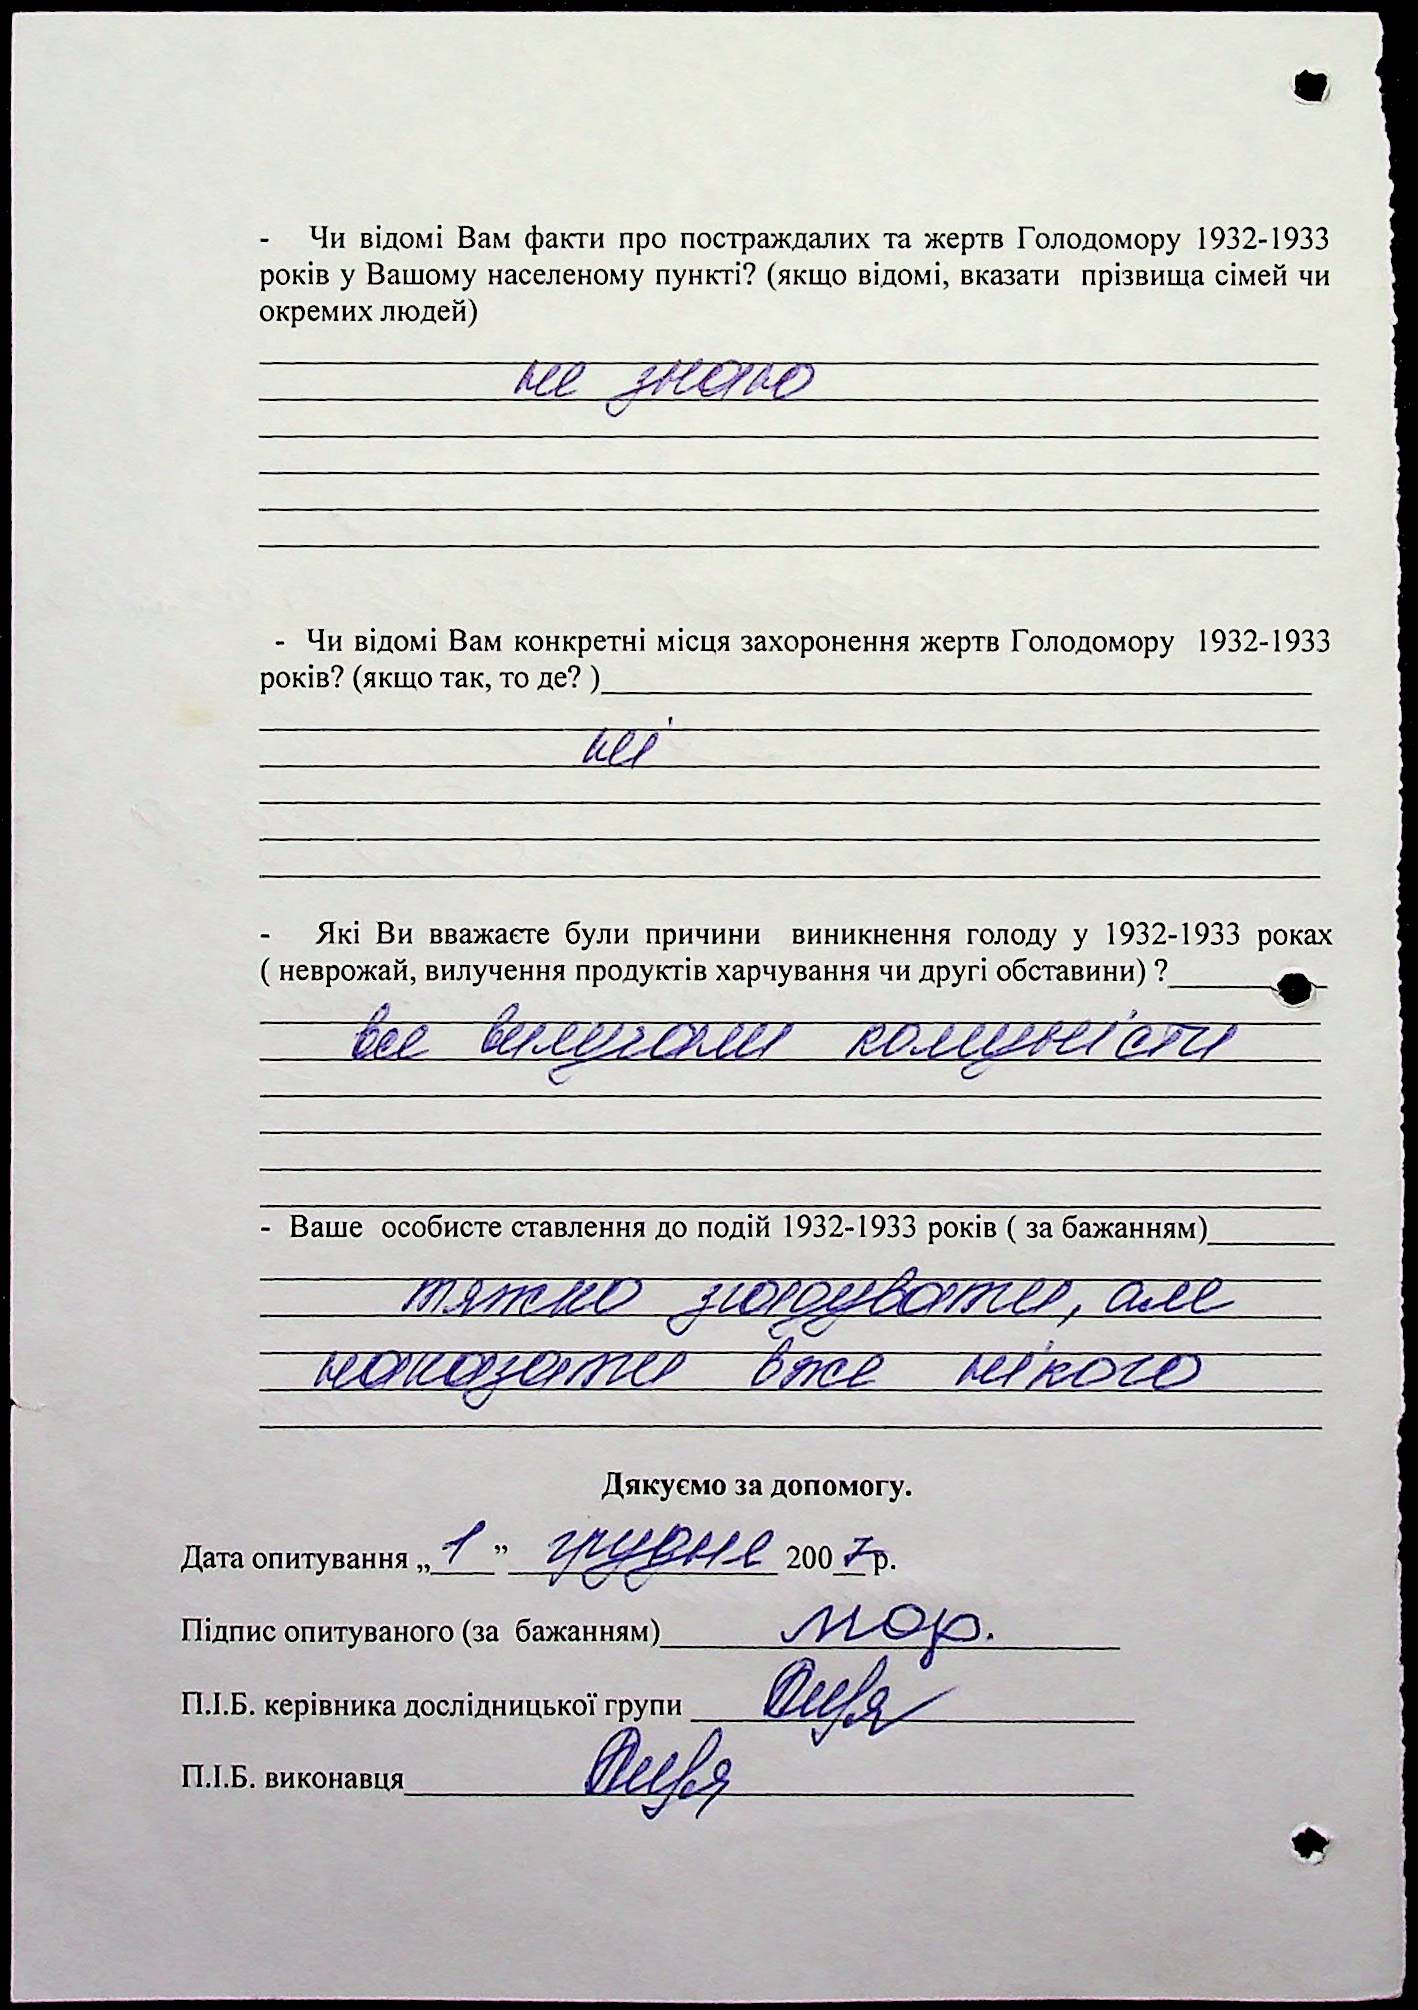 - Чи відомі Вам факти про постраждалих та жертв Голодомору 1932-1933
років у Вашому населеному пункті? (якщо відомі, вказати прізвища сімей чи
окремих людей)
не знаю
- Чи відомі Вам конкретні місця захоронення жертв Голодомору 1932-1933
років? (якщо так, то де? )
ні
- Які Ви вважаєте були причини виникнення голоду у 1932-1933 роках
( неврожай, вилучення продуктів харчування чи другі обставини) ?
все вилучали комуністи
- Ваше особисте ставлення до подій 1932-1933 років ( за бажанням)
тяжко згадувати, але
наказати вже нікого
Дякуємо за допомогу.
Дата опитування „ 1 ” грудня 2007 р.
Підпис опитуваного (за бажанням)
П.І.Б. керівника дослідницької групи
П.І.Б. виконавця